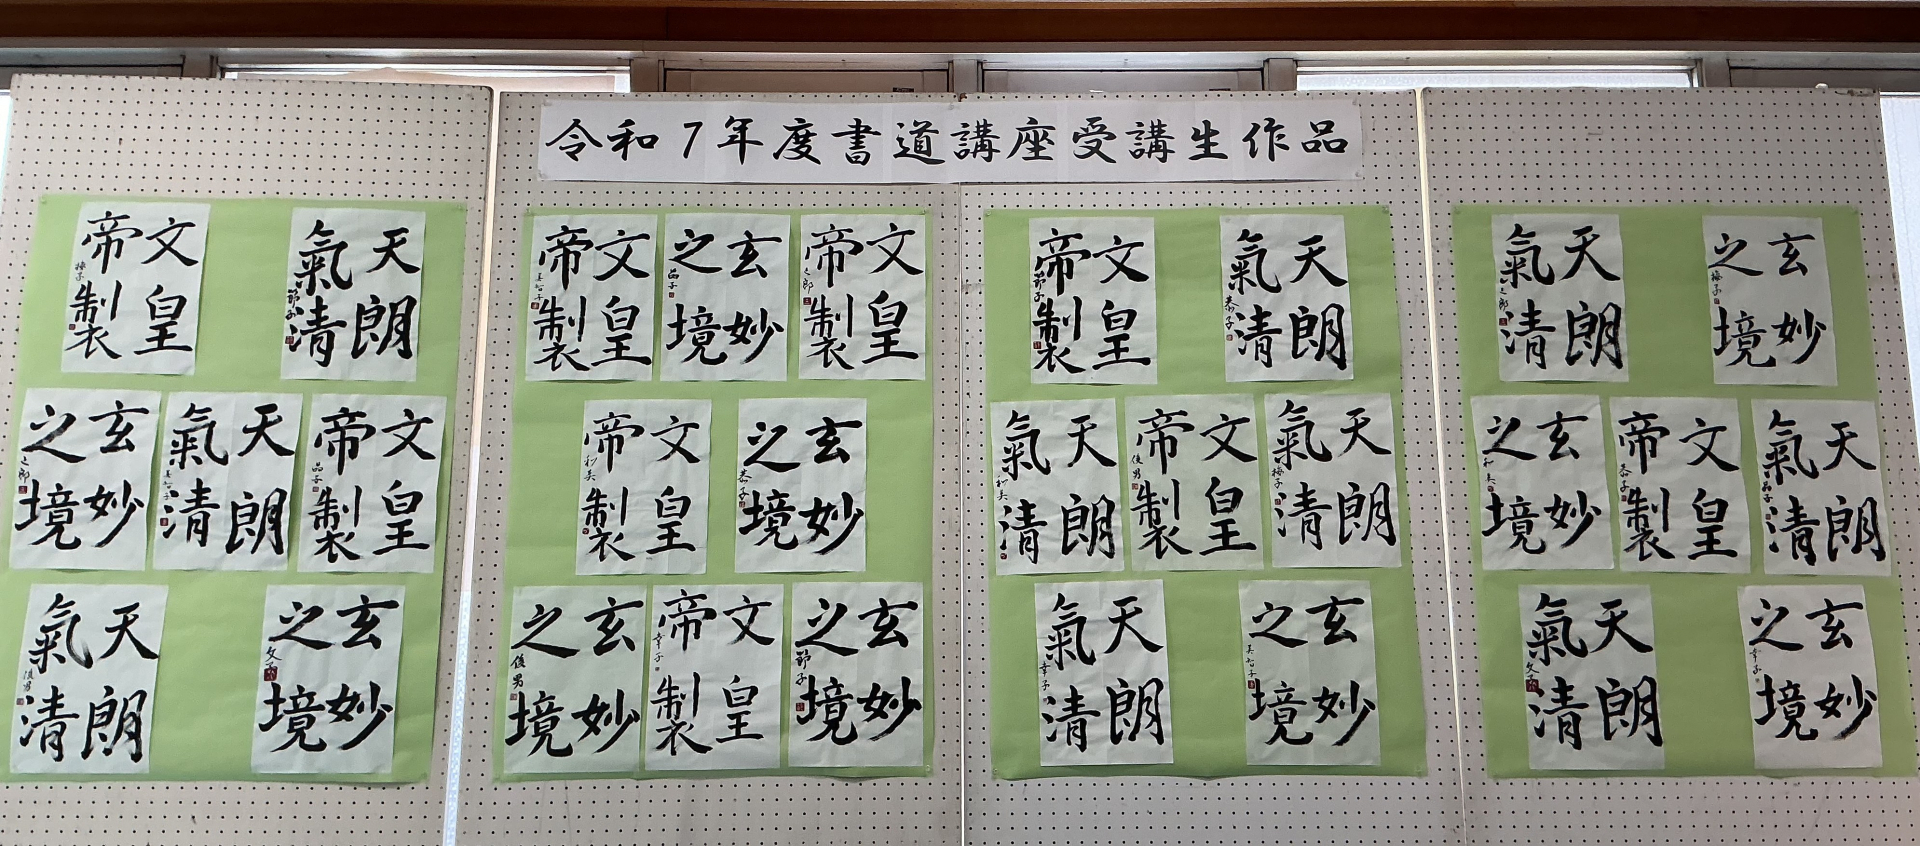 令和7年度書道講座受講生作品
文皇
帝製
天朗
氣清
節子
玄妙
之境
天朗
氣清
美智子
文皇
帝製
天朗
氣清
俊男
玄妙
之境
文子
文皇
帝製
美智子
玄妙
之境
文皇
帝製
文皇
帝製
和美
玄妙
之境
恭子
玄妙
之境
俊男
文皇
帝製
幸子
玄妙
之境
節子
文皇
帝製
節子
天朗
氣清
恭子
天朗
氣清
和美
文皇
帝製
俊男
天朗
氣清
天朗
氣清
幸子
玄妙
之境
美智子
天朗
氣清
玄妙
之境
玄妙
之境
和美
文皇
帝製
恭子
天朗
氣清
天朗
氣清
文子
玄妙
之境
幸子